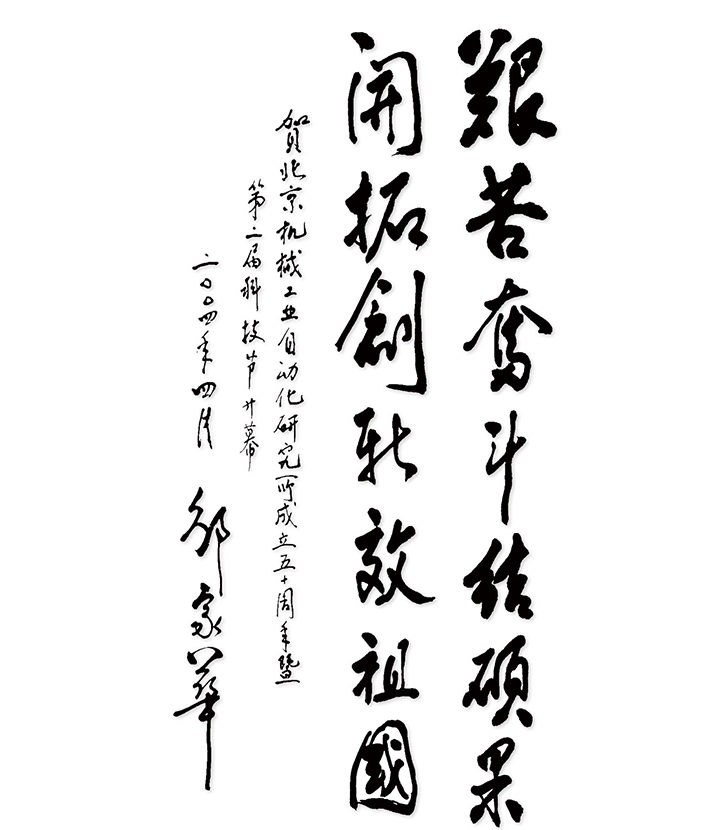 艱苦奮斗結碩果
開拓創新效祖國
賀北京机械工业自动化研究所成立五十周年暨
第二届科技节开幕
二〇〇四年四月
邹家华